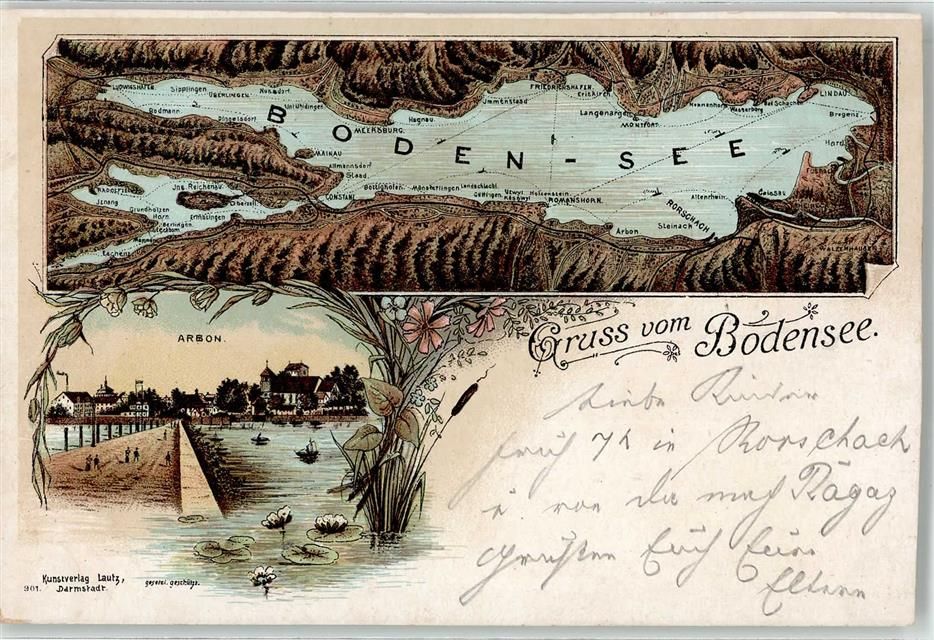 BODEN-SEE
LUDWIGSHAFEN
Sipplingen
ÜBERLINGEN
Nussdorf.
Bodmann.
Dingelsdorf
Unt. Uhldingen
MEERSBURG.
Hagnau
Immenstaad
FRIEDRICHSHAFEN
Eriskirch.
Langenargen
MONTFORT.
Nonnenhorn
Wasserburg
Bad Schachen
LINDAU.
Bregenz
Hard.
MAINAU
Allmannsdorf
Staad.
CONSTANZ
RADOLFZELL
Jns. Reichenau
Iznang
Grundholzen
Horn
Ermatingen
Berlingen
Steckborn
Bottighofen.
Münsterlingen
Landschlacht.
Güttigen.
Uewyl
Kesswyl
Holzenstein.
ROMANSHORN.
Arbon
Steinach
RORSCHACH
Altenrhein.
Gaissau
ARBON.
Gruss vom Bodensee.
Liebe Kinder
früh 7h in Rorschach
u. von da nach Ragaz
Grüssen Euch Eure
Eltern
Kunstverlag Lautz,
901. Darmstadt.
gesetzl. geschützt.